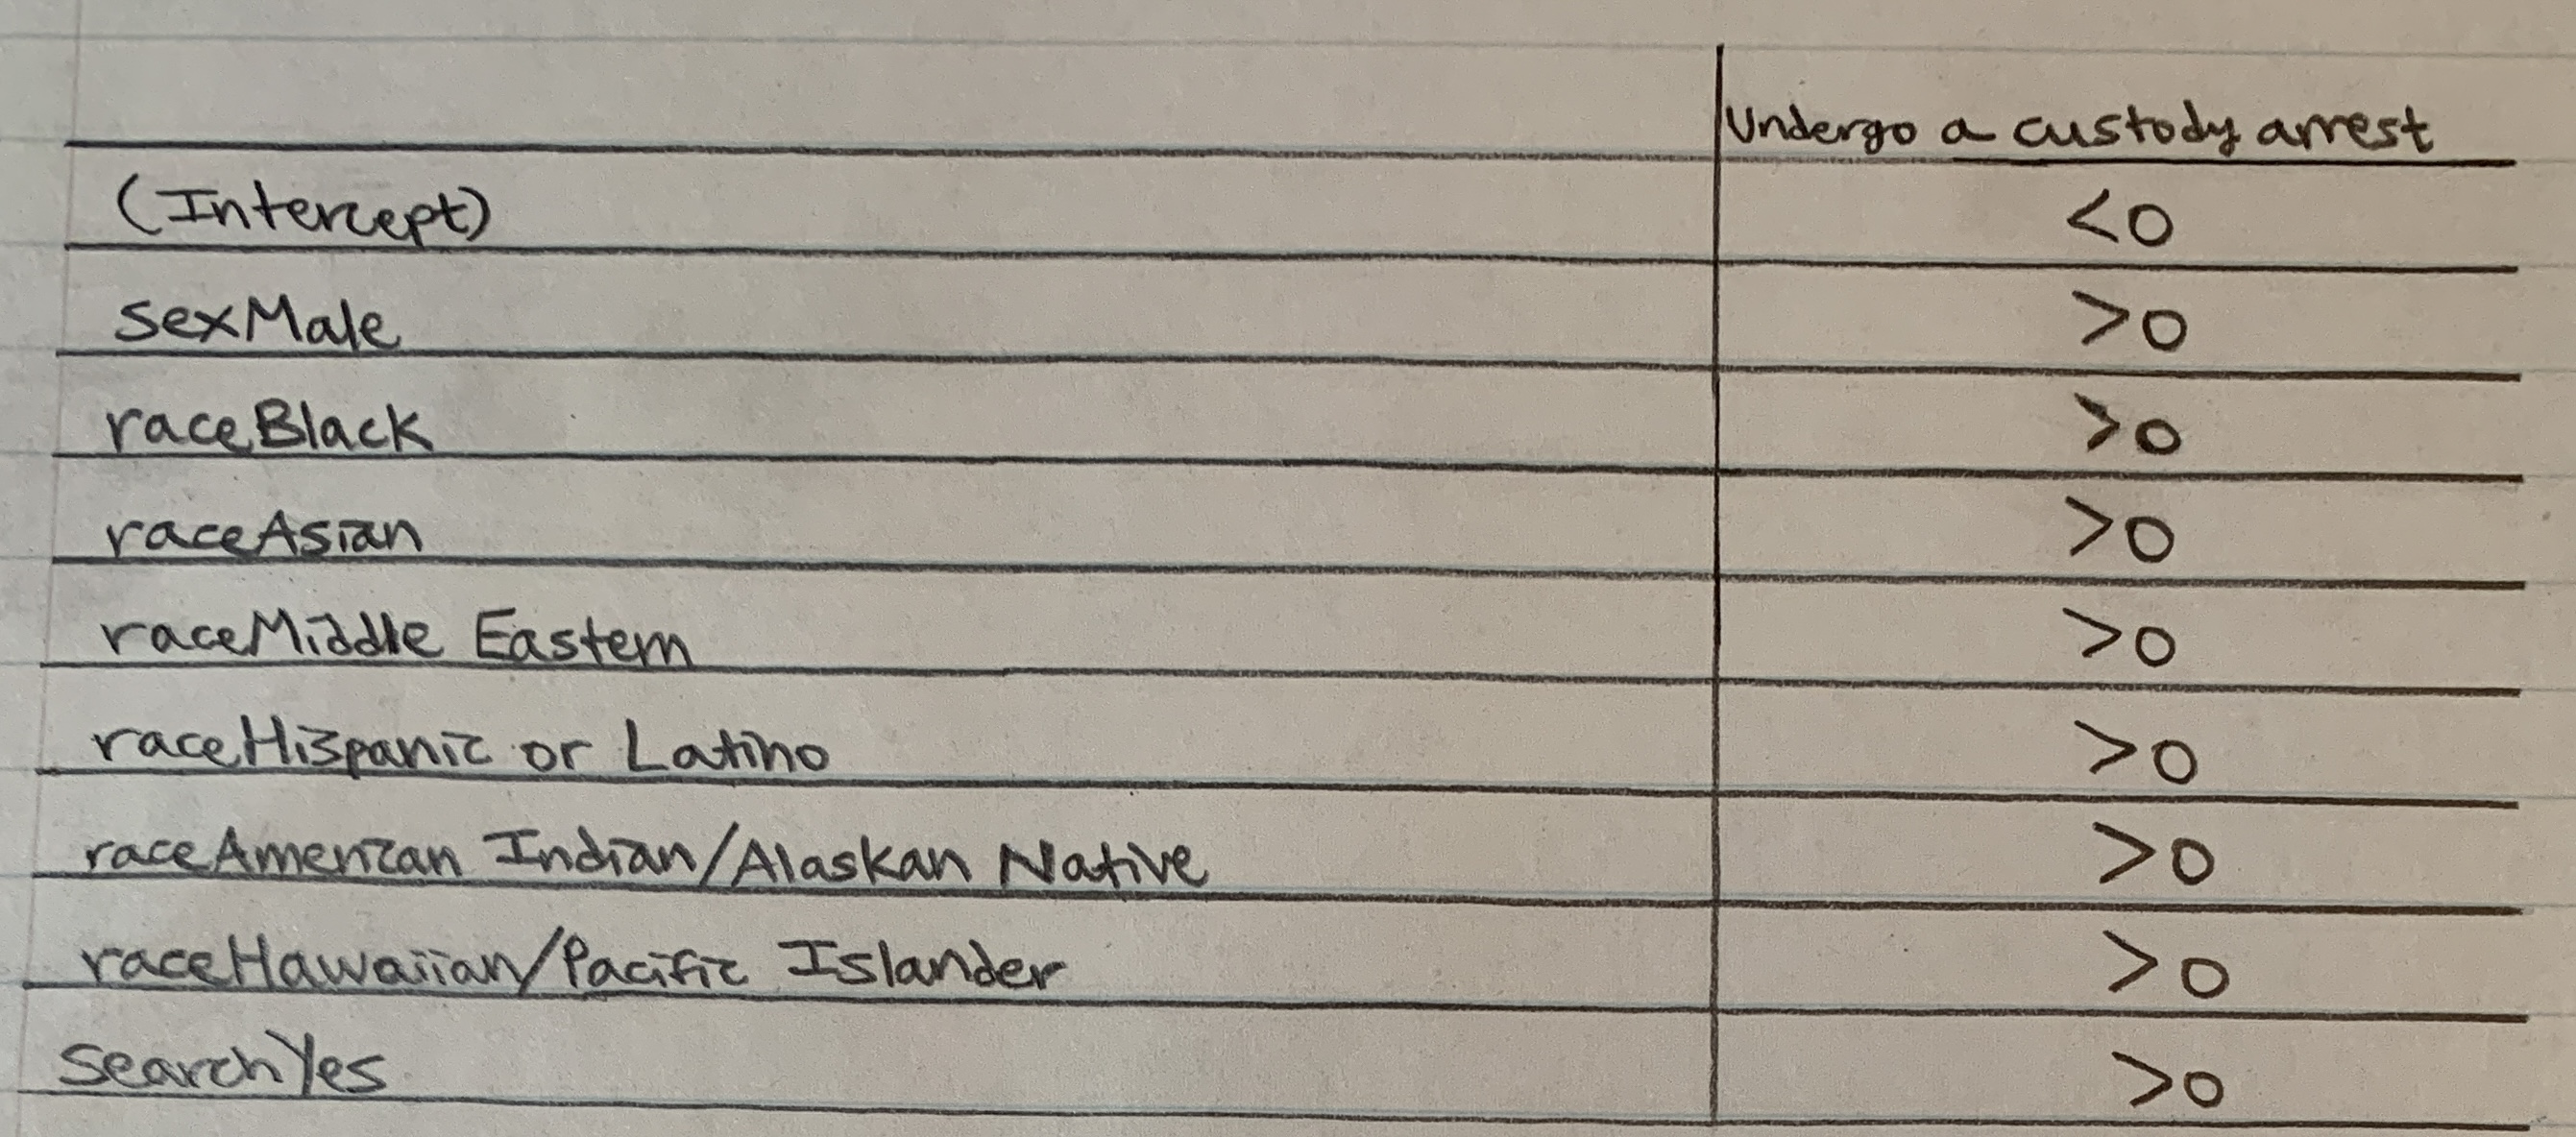 Undergo a custody arrest
(Intercept) <0
sexMale >0
raceBlack >0
raceAsian >0
raceMiddle Eastern >0
raceHispanic or Latino >0
raceAmerican Indian/Alaskan Native >0
raceHawaiian/Pacific Islander >0
searchYes >0